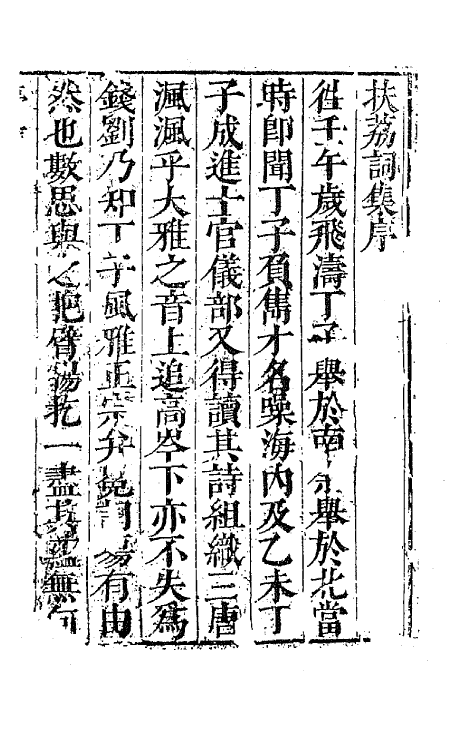 扶荔詞集序
徃壬午歲飛濤丁子舉於南余舉於北當
時卽聞丁子負雋才名噪海內及乙未丁
子成進士官儀部又得讀其詩組織三唐
渢渢乎大雅之音上追高岑下亦不失爲
錢劉乃知丁子風雅正宗弁冕有由
然也數思與之把臂揚扢一盡其蘊無何